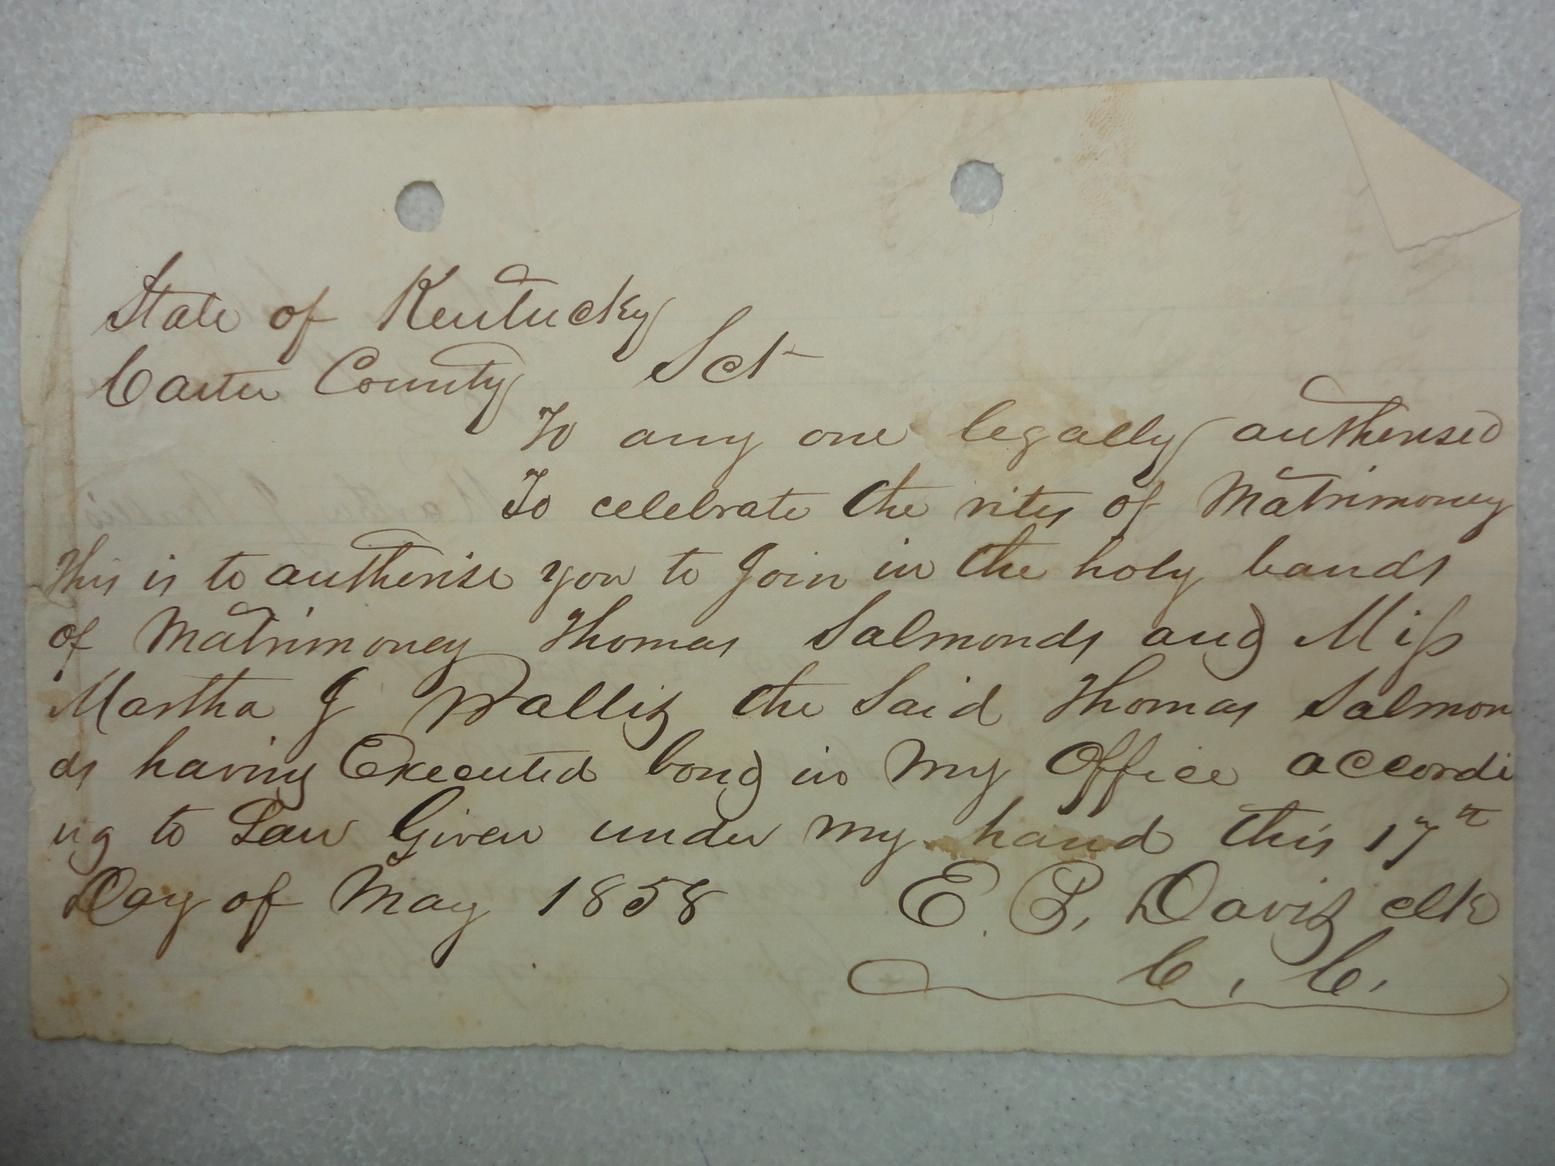 State of Kentucky
Carter County Sct
To any one legally authorised
To celebrate the rites of Matrimoney
This is to authorise you to Join in the holy bands
of Matrimoney Thomas Salmonds and Miss
Martha J Wallis the Said Thomas Salmon
ds having Executed bond in My Office accordi
ng to Law Given under my hand this 17th
Day of May 1858 E. B. Davis clk
C. C.